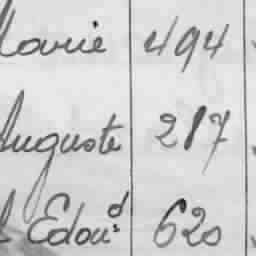 Marie 494
Auguste 217
Edou^d 620